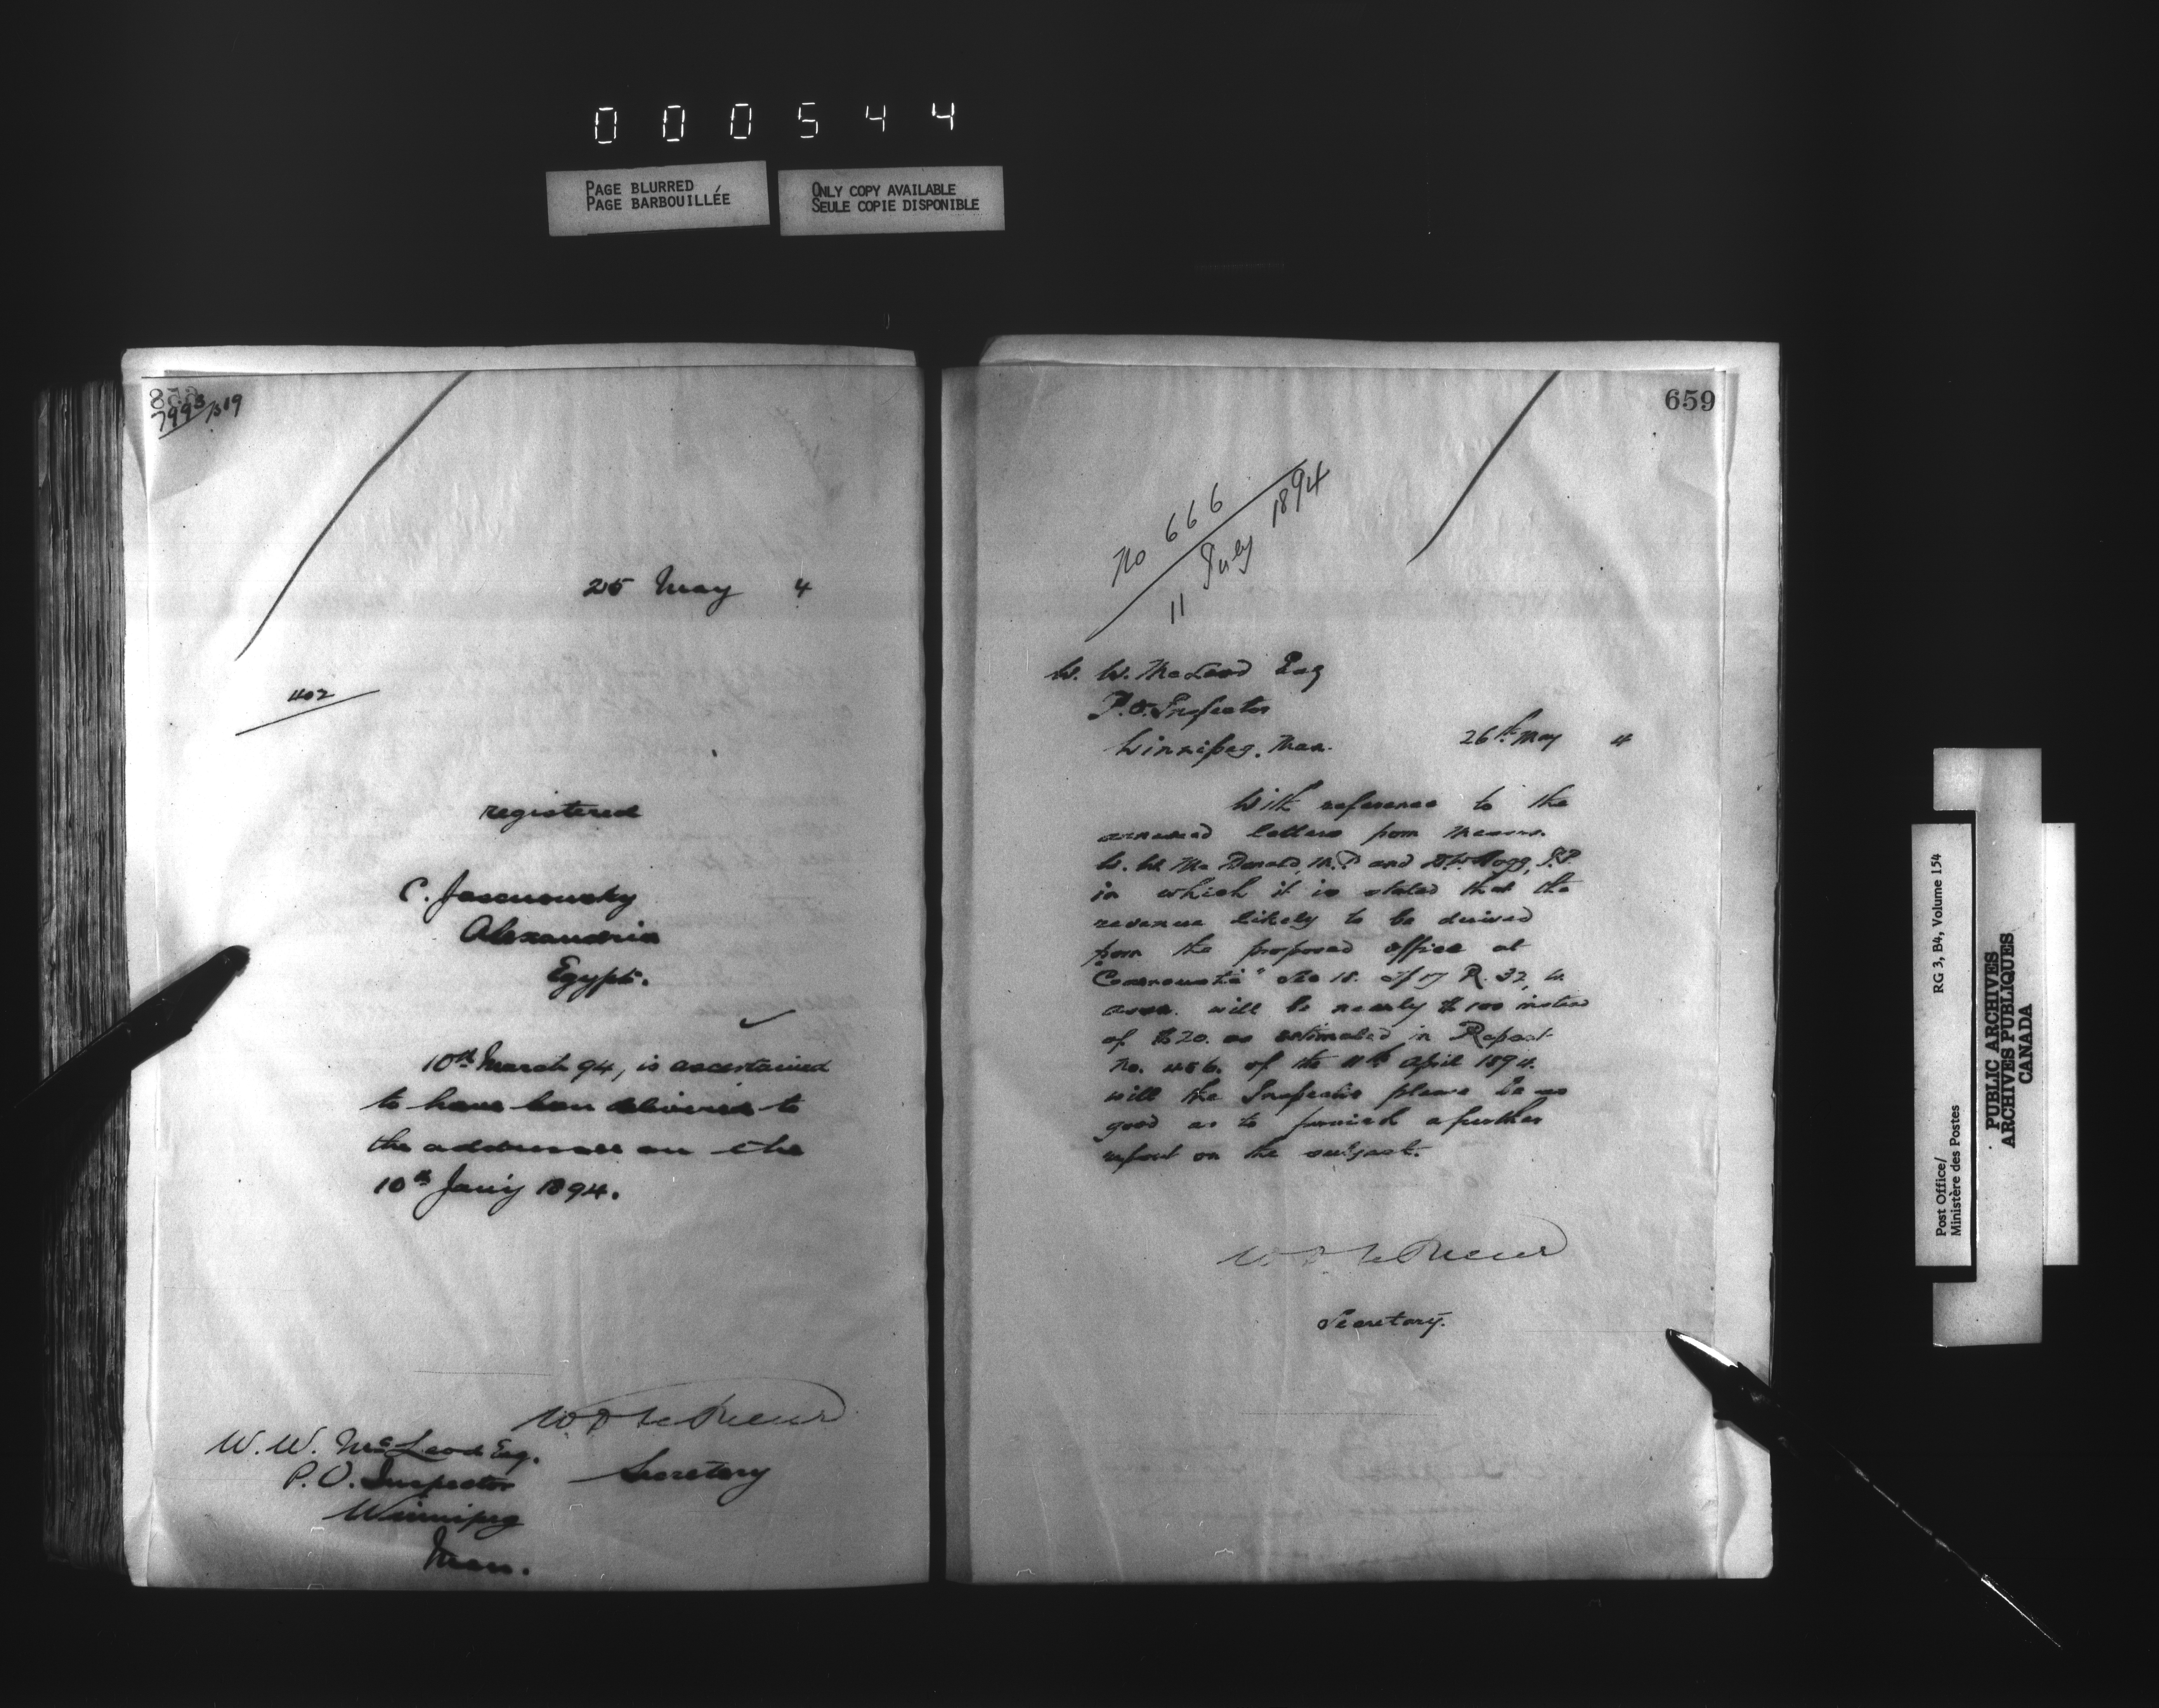 000544
PAGE BLURRED
PAGE BARBOUILLÉE
ONLY COPY AVAILABLE
SEULE COPIE DISPONIBLE
658
7993/519
25 May 4
402
registered
C.
Alexandria
Egypt.
10th March 94, is ascertained
to have been delivered to
the addressee on the
10th Jan'y 1894.
W. D. LeSueur
Secretary
W. W. McLeod Esq.
P. O. Inspector
Winnipeg
Man.
659
No 666
11 July 1894
W. W. McLeod Esq
P.O. Inspector
Winnipeg. Man.
26th May 4
With reference to the
annexed letters from Messrs.
W. W. McDonald, M.P. and Hogg, J.P.
in which it is stated that the
revenue likely to be derived
from the proposed office at
" Sec 18. Tp 17 R. 32, W.
will be nearly $100 instead
of $20. as estimated in Report
No. 456. of the 11th April 1894.
will the Inspector please be so
good as to furnish a further
report on the subject.
W. D. LeSueur
Secretary.
Post Office/
Ministère des Postes
RG 3, B4, Volume 154
PUBLIC ARCHIVES
ARCHIVES PUBLIQUES
CANADA